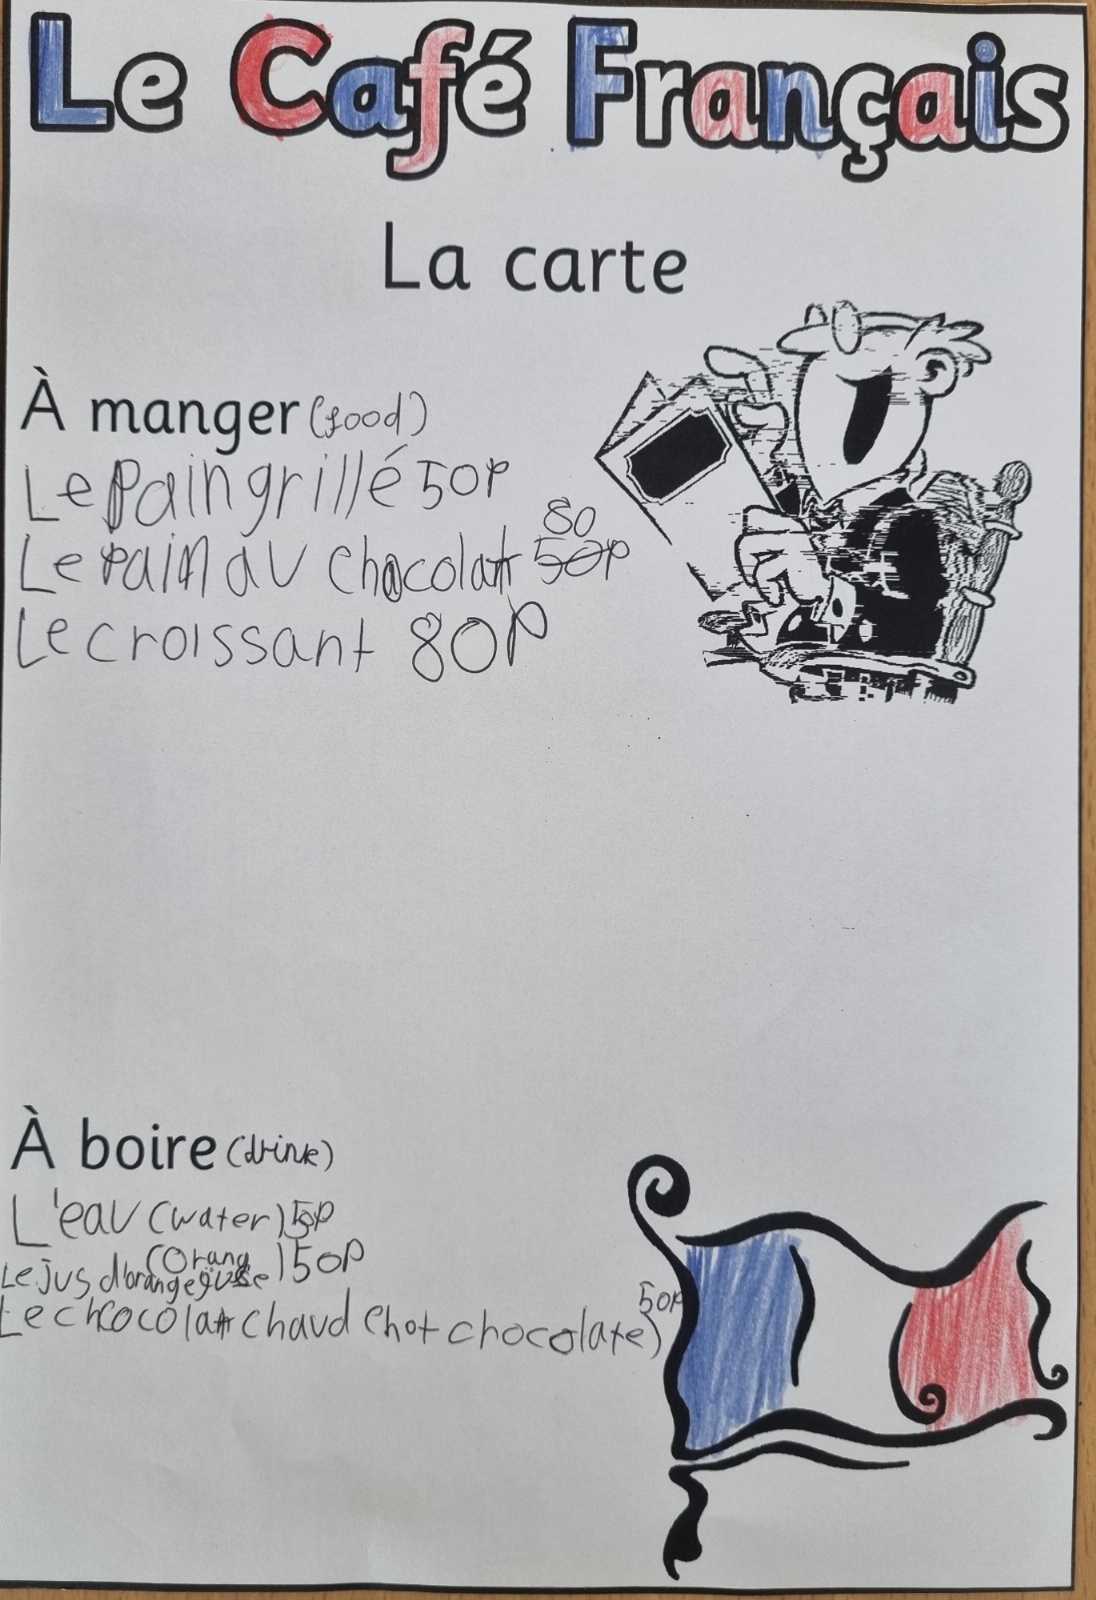 Le Café Français
La carte
À manger (food)
Le Pain grillé 50P
Le Pain au chocolat 80
Le croissant 80P
À boire (drink)
L'eau (water) 50P
Le jus d'orange (Orang) 50P
Le chocolat chaud (hot chocolate) 50P